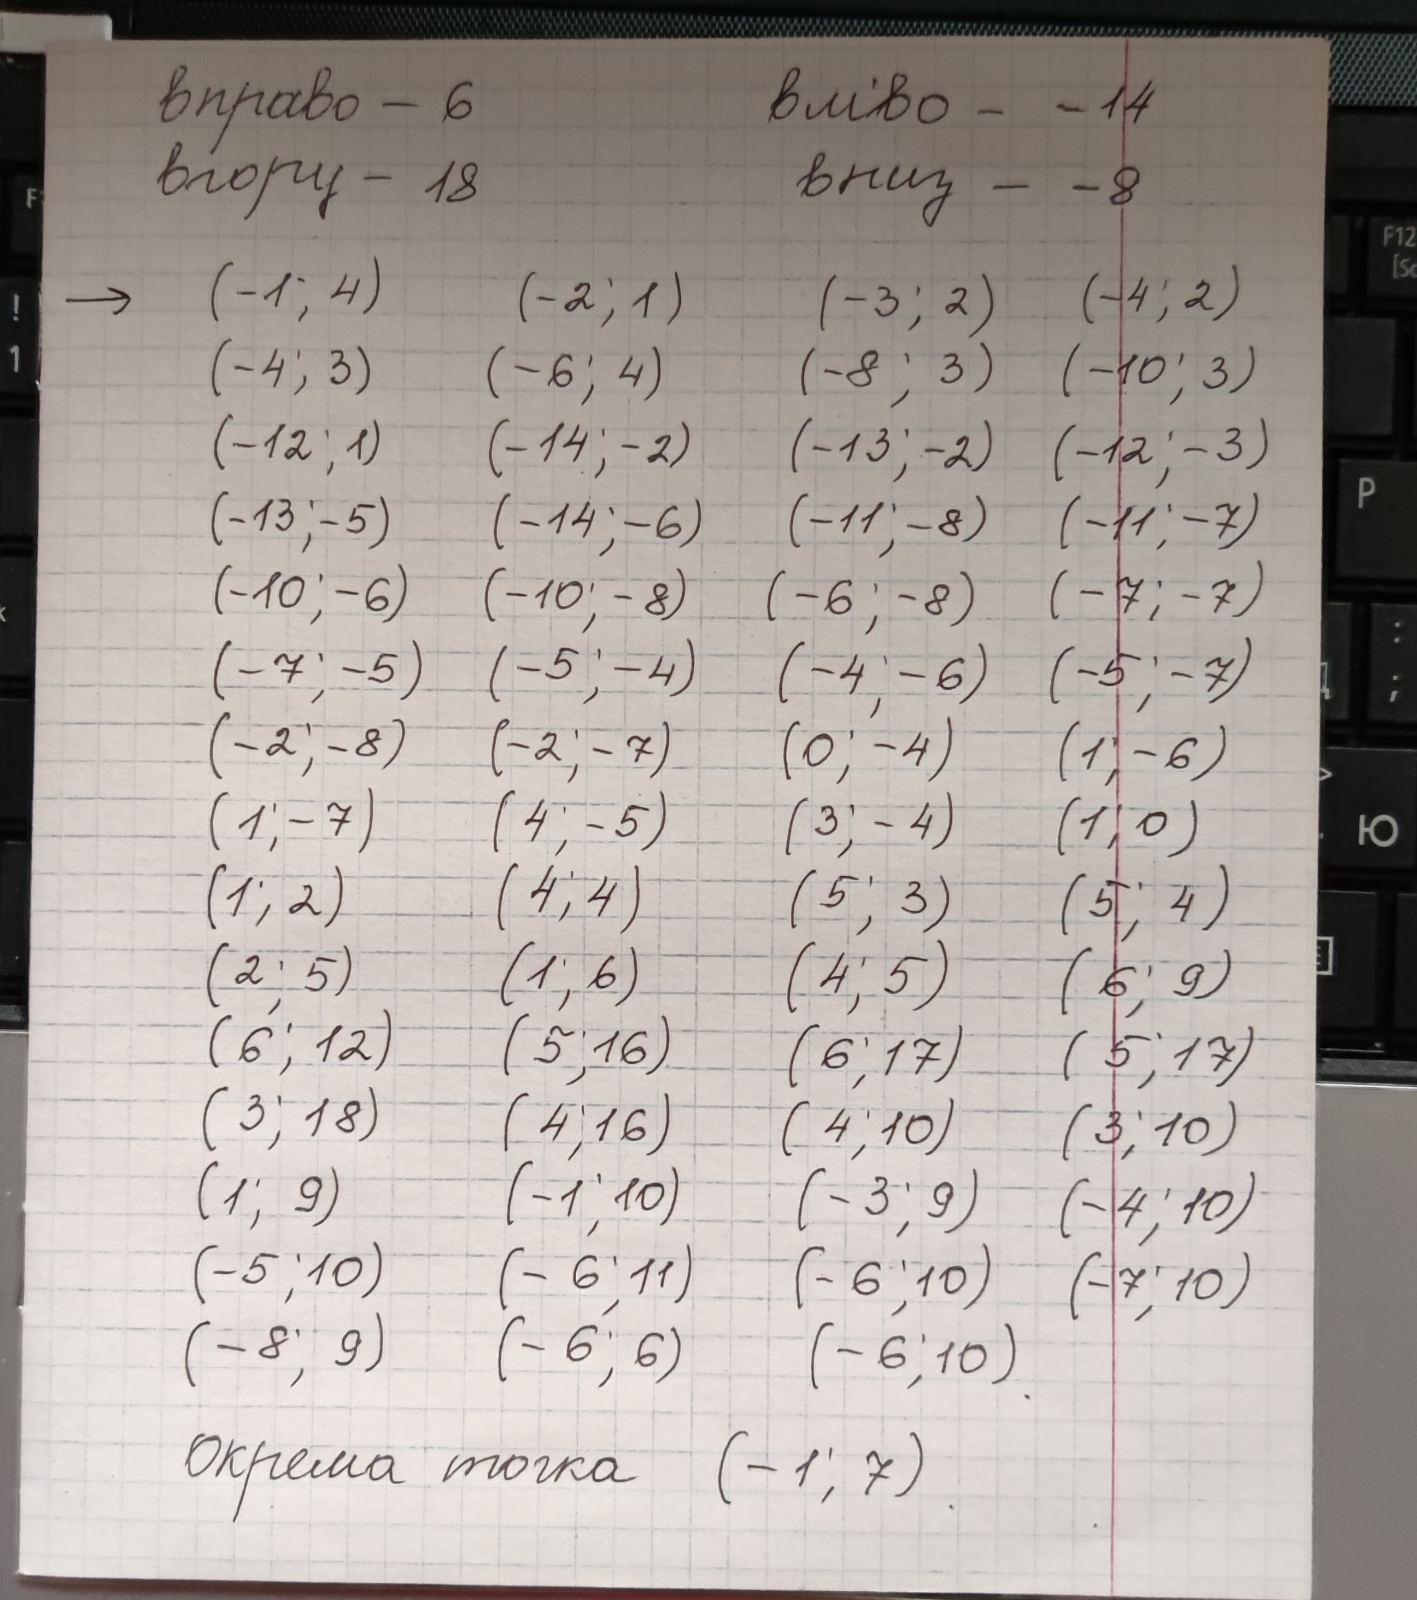 вправо – 6 вліво – -14
вгору – 18 вниз – -8
→ (-1; 4) (-2; 1) (-3; 2) (-4; 2)
(-4; 3) (-6; 4) (-8; 3) (-10; 3)
(-12; 1) (-14; -2) (-13; -2) (-12; -3)
(-13; -5) (-14; -6) (-11; -8) (-11; -7)
(-10; -6) (-10; -8) (-6; -8) (-7; -7)
(-7; -5) (-5; -4) (-4; -6) (-5; -7)
(-2; -8) (-2; -7) (0; -4) (1; -6)
(1; -7) (4; -5) (3; -4) (1; 0)
(1; 2) (4; 4) (5; 3) (5; 4)
(2; 5) (1; 6) (4; 5) (6; 9)
(6; 12) (5; 16) (6; 17) (5; 17)
(3; 18) (4; 16) (4; 10) (3; 10)
(1; 9) (-1; 10) (-3; 9) (-4; 10)
(-5; 10) (-6; 11) (-6; 10) (-7; 10)
(-8; 9) (-6; 6) (-6; 10).
Окрема точка (-1; 7).
! 1
F12
P
: ;
Ю